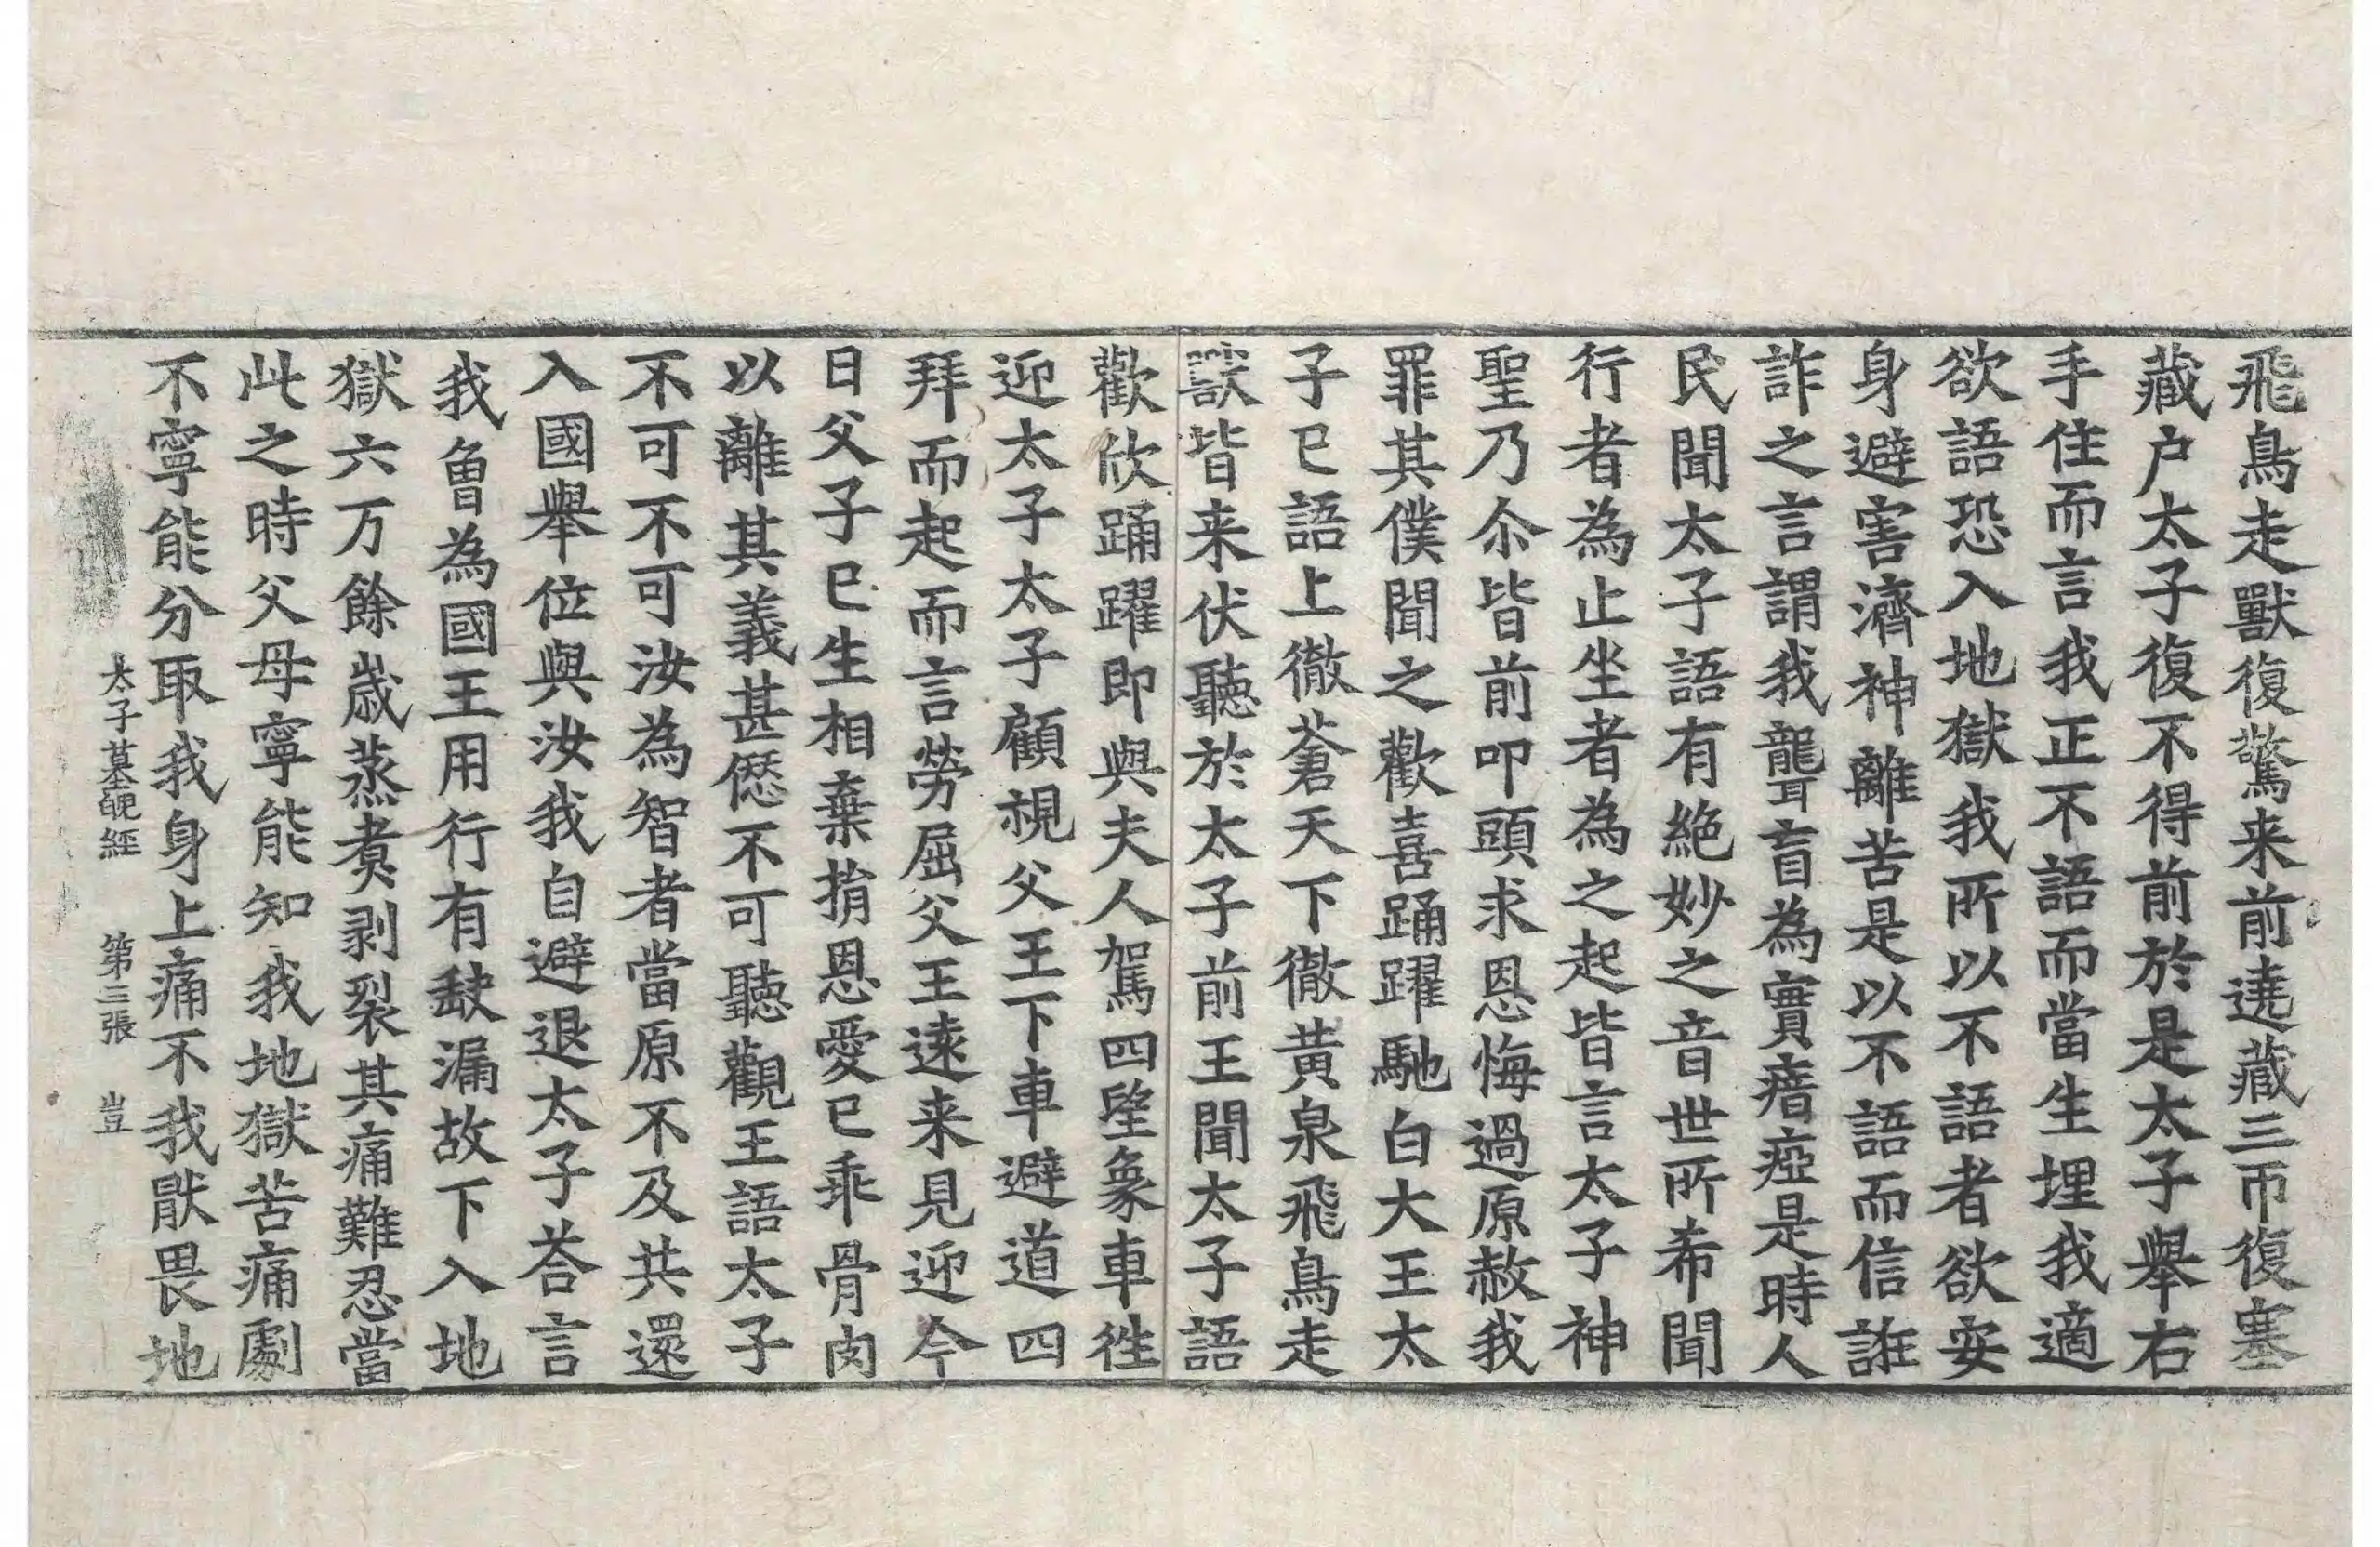 飛鳥走獸復驚来前遶藏三帀復塞
藏户太子復不得前於是太子舉右
手住而言我正不語而當生埋我適
欲語恐入地獄我所以不語者欲安
身避害濟神離苦是以不語而信誑
詐之言謂我聾盲為實瘖瘂是時人
民聞太子語有絶妙之音世所希聞
行者為止坐者為之起皆言太子神
聖乃尒皆前叩頭求恩悔過原赦我
罪其僕聞之歡喜踊躍馳白大王太
子已語上徹蒼天下徹黃泉飛鳥走
獸皆来伏聽於太子前王聞太子語
歡欣踊躍即與夫人駕四望象車徃
迎太子太子顧視父王下車避道四
拜而起而言勞屈父王逺来見迎今
日父子已生相棄捐恩愛已乖骨肉
以離其義甚㥶不可聽觀王語太子
不可不可汝為智者當原不及共還
入國舉位與汝我自避退太子荅言
我曾為國王用行有缺漏故下入地
獄六万餘歲蒸煑剥裂其痛難忍當
此之時父母寧能知我地獄苦痛劇
不寧能分取我身上痛不我猒畏地
太子墓魄經　第三張　豈